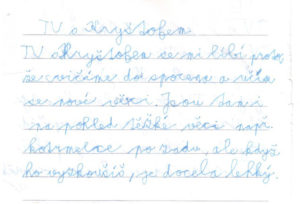 TV s Kryštofem
TV s Kryštofem se mi líbí proto
že cvičíme do spocena a učím
se nové věci. Jsou tam i
na pohled těžké věci např.
kotrmelce po zadu, ale když
ho vyzkoušíš, je docela lehký.